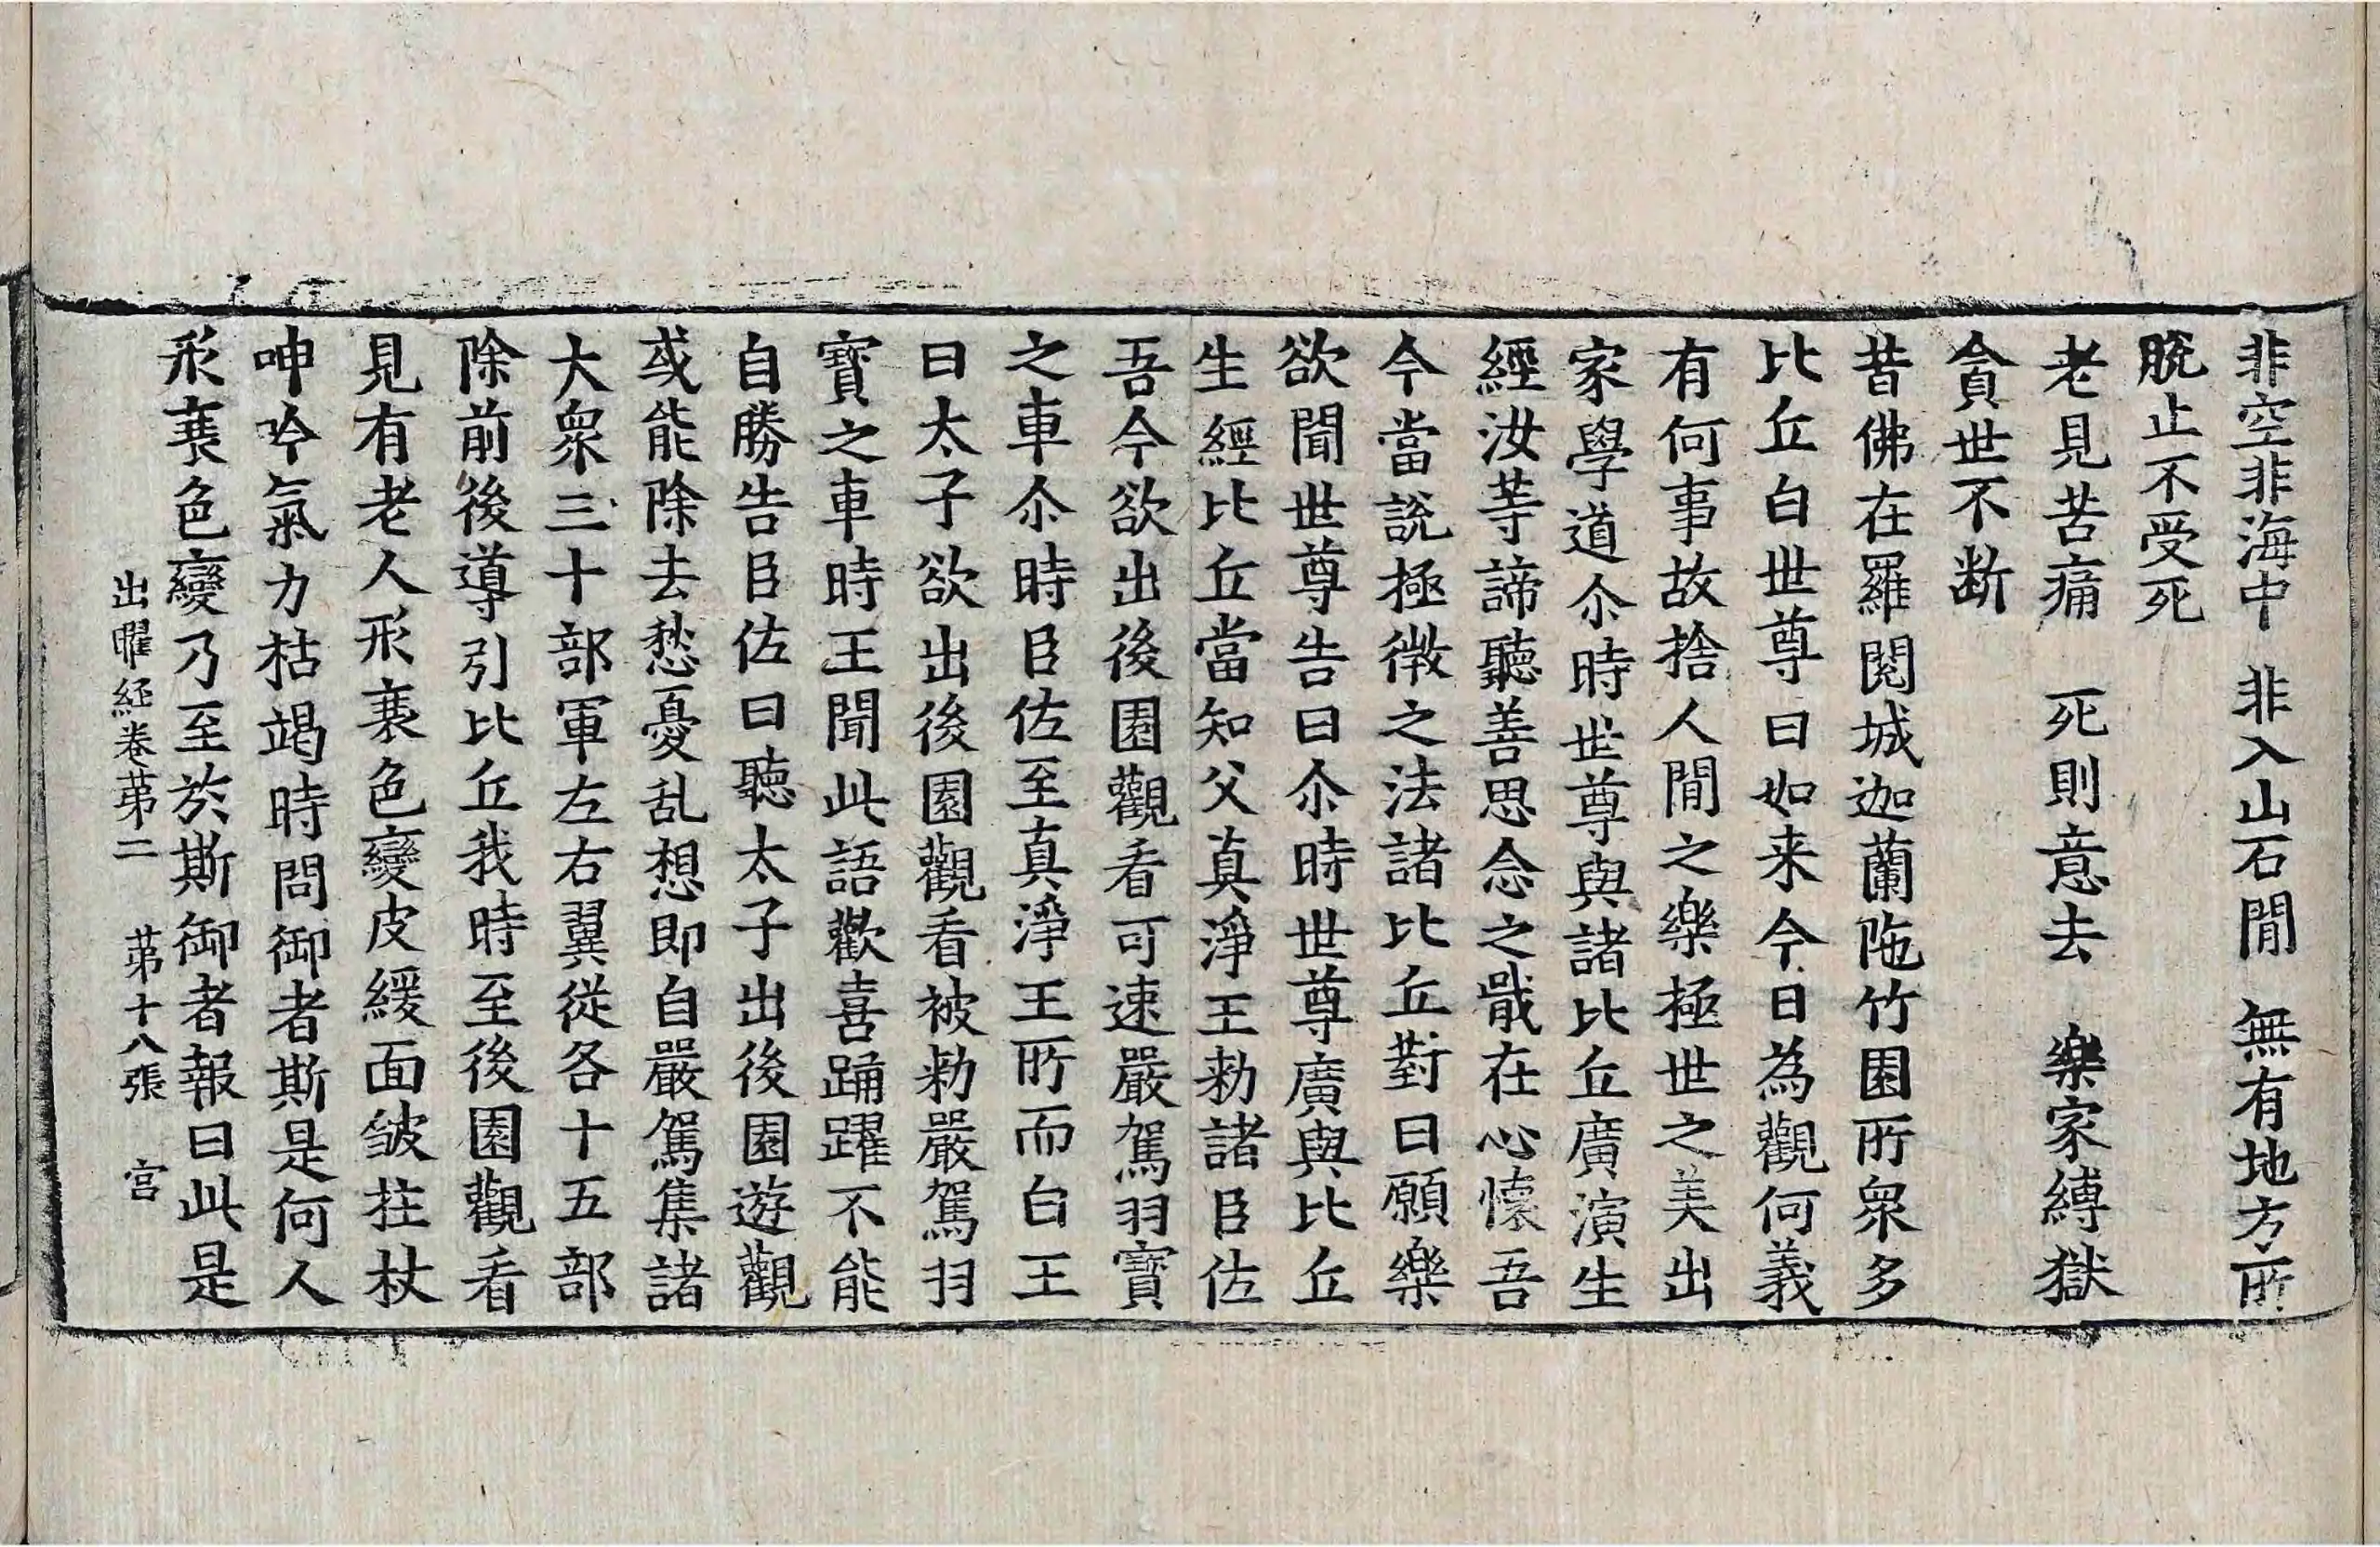 非空非海中　非入山石間　無有地方所
脫止不受死
老見苦痛　死則意去　樂家縛獄
貪世不断
昔佛在羅閱城迦蘭陁竹園所衆多
比丘白世尊曰如来今日為觀何義
有何事故捨人間之樂極世之美出
家學道尒時世尊與諸比丘廣演生
經汝等諦聽善思念之戢在心懷吾
今當說極微之法諸比丘對曰願樂
欲聞世尊告曰尒時世尊廣與比丘
生經比丘當知父真淨王勑諸臣佐
吾今欲出後園觀看可速嚴駕羽寶
之車尒時臣佐至真淨王所而白王
曰太子欲出後園觀看被勑嚴駕羽
寶之車時王聞此語歡喜踊躍不能
自勝告臣佐曰聽太子出後園遊觀
或能除去愁憂乱想即自嚴駕集諸
大衆三十部軍左右翼從各十五部
除前後導引比丘我時至後園觀看
見有老人形衰色變皮緩面皺拄杖
呻吟氣力枯竭時問御者斯是何人
形衰色變乃至於斯御者報曰此是
出曜経卷苐二　苐十八張　宫